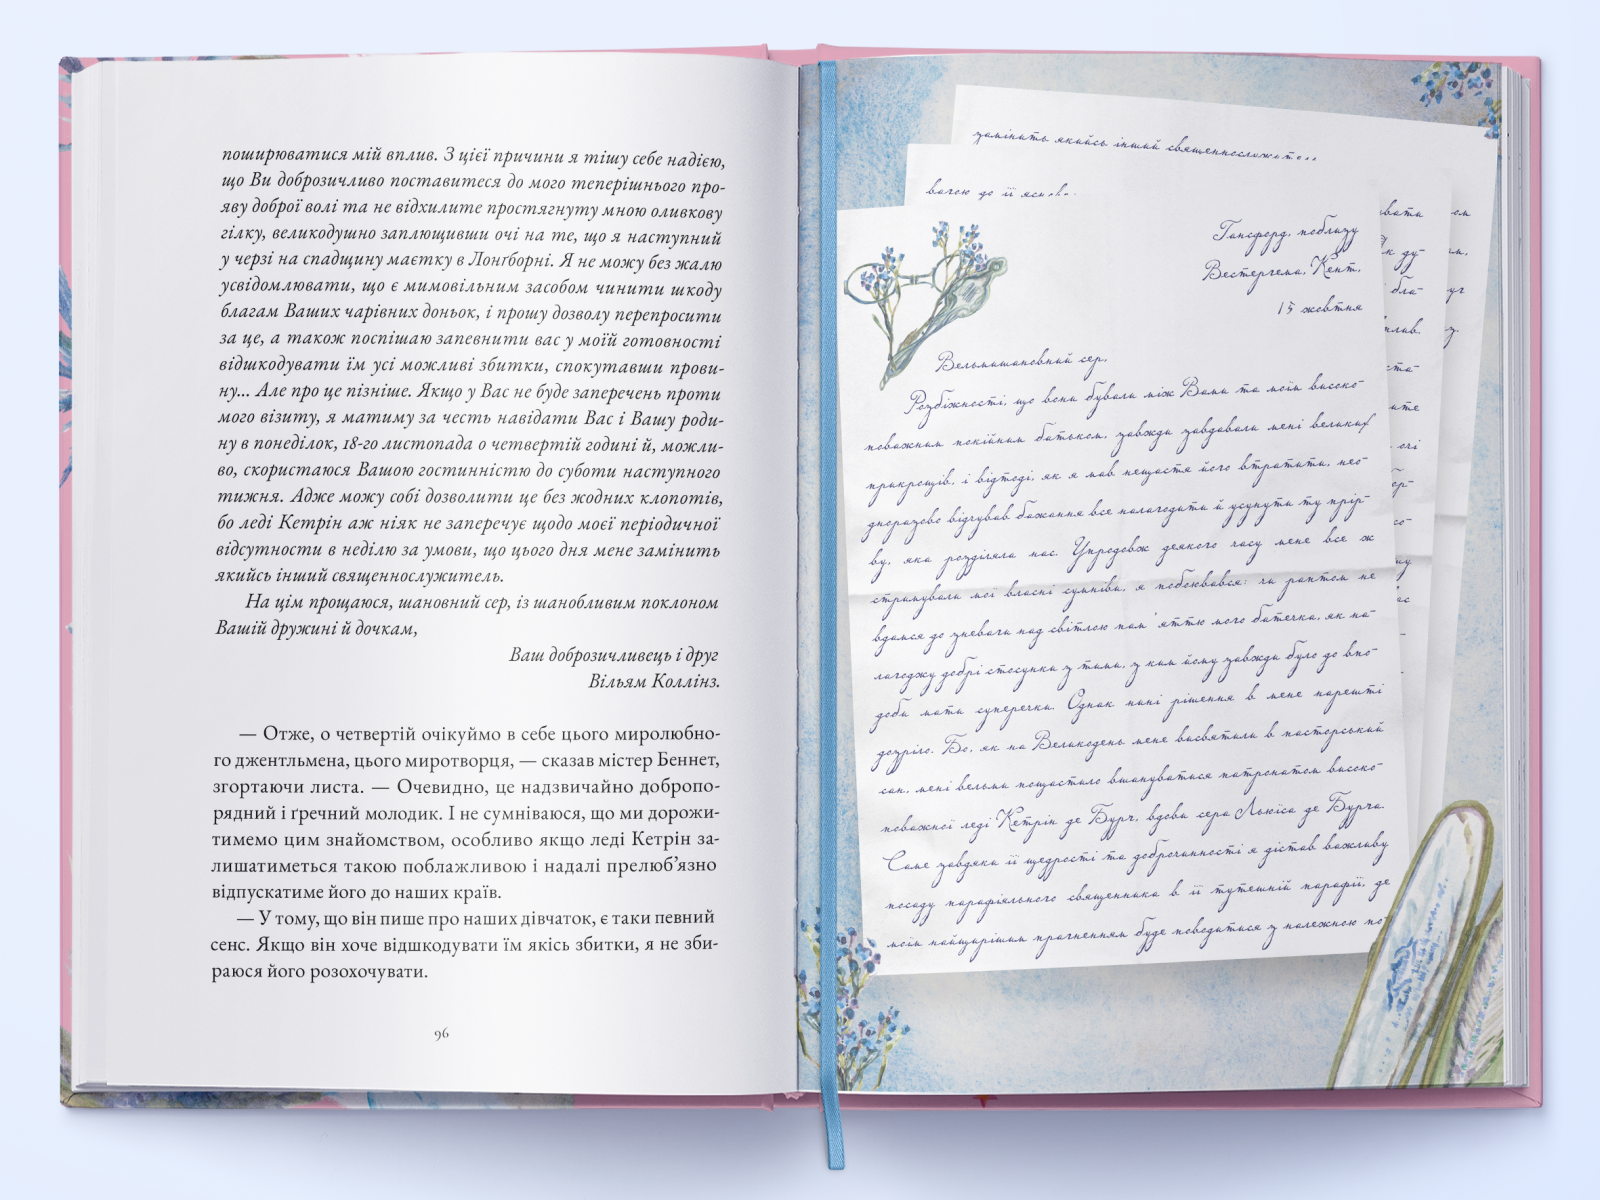 поширюватися мій вплив. З цієї причини я тішу себе надією,
що Ви доброзичливо поставитеся до мого теперішнього про-
яву доброї волі та не відхилите простягнуту мною оливкову
гілку, великодушно заплющивши очі на те, що я наступний
у черзі на спадщину маєтку в Лонґборні. Я не можу без жалю
усвідомлювати, що є мимовільним засобом чинити шкоду
благам Ваших чарівних доньок, і прошу дозволу перепросити
за це, а також поспішаю запевнити вас у моїй готовності
відшкодувати їм усі можливі збитки, спокутавши прови-
ну... Але про це пізніше. Якщо у Вас не буде заперечень проти
мого візиту, я матиму за честь навідати Вас і Вашу роди-
ну в понеділок, 18-го листопада о четвертій годині й, можли-
во, скористаюся Вашою гостинністю до суботи наступного
тижня. Адже можу собі дозволити це без жодних клопотів,
бо леді Кетрін аж ніяк не заперечує щодо моєї періодичної
відсутности в неділю за умови, що цього дня мене замінить
якийсь інший священнослужитель.
На цім прощаюся, шановний сер, із шанобливим поклоном
Вашій дружині й дочкам,
Ваш доброзичливець і друг
Вільям Коллінз.
— Отже, о четвертій очікуймо в себе цього миролюбно-
го джентльмена, цього миротворця, — сказав містер Беннет,
згортаючи листа. — Очевидно, це надзвичайно добропо-
рядний і ґречний молодик. І не сумніваюся, що ми дорожи-
тимемо цим знайомством, особливо якщо леді Кетрін за-
лишатиметься такою поблажливою і надалі прелюб’язно
відпускатиме його до наших країв.
— У тому, що він пише про наших дівчаток, є таки певний
сенс. Якщо він хоче відшкодувати їм якісь збитки, я не зби-
раюся його розохочувати.
96
замінить якийсь інший священнослужите
вагою до її
Гансфорд, поблизу
Вестергема, Кент,
15 жовтня
Вельмишановний сер,
Розбіжності, що вони бували між Вами та моїм високо-
поважним покійним батьком, завжди завдавали мені великих
прикрощів, і відтоді, як я мав нещастя його втратити, нео-
дноразово відчував бажання все налагодити й усунути ту прір-
ву, яка розділяла нас. Упродовж деякого часу мене все ж
стримували мої власні сумніви, я побоювався: чи раптом не
вдамся до зневаги над світлою пам'яттю мого батечка, як на-
лагоджу добрі стосунки з тими, з ким йому завжди було до впо-
доби мати суперечки. Однак нині рішення в мене нарешті
дозріло. Бо, як на Великдень мене висвятили в пасторський
сан, мені вельми пощастило вшануватися патронатом високо-
поважної леді Кетрін де Бурґ, вдови сера Льюїса де Бурґа.
Саме завдяки її щедрості та доброчинності я дістав важливу
посаду парафіяльного священника в її тутешній парафії, де
моїм найщирішим прагненням буде поводитися з належною по-